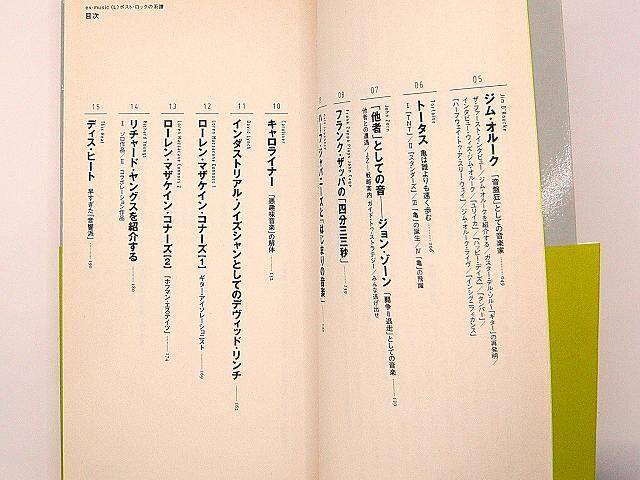 ex-music〈L〉ポスト・ロックの系譜
目次
05
Jim O'Rourke
ジム・オルーク 「音盤狂」としての音楽家
ザ・ファースト・インタビュー／ジム・オルークを紹介する／ガスター・デル・ソル／「ギター」の再発明／
インタビュー・ウィズ・ジム・オルーク／『ユリイカ』／『ハッピー・デイズ』／『タンパー』／
『ハーフウェイ・トゥ・ア・スリーウェイ』／ジム・オルーク・ライヴ／『インシグニフィカンス』
06
Tortoise
トータス 亀は誰よりも速く歩む
Ⅰ『TNT』／Ⅱ『スタンダーズ』／Ⅲ「亀」の誕生／Ⅳ「亀」の飛躍
07
John Zorn
「他者」としての音――ジョン・ゾーン 「闘争＝逃走」としての音楽
他者との遭遇／ゾーン戦略案内 ガイド・トゥ・ストラテジー／みんな逃げ出せ
08
フランク・ザッパの「四分三三秒」
ハーフ・ジャパニーズと「はじまりの音楽」
10
Caroliner
キャロライナー 「悪趣味音楽」の解体
11
David Lynch
インダストリアル・ノイズシャンとしてのデヴィッド・リンチ
12
Loren Mazzacane Connors 1
ローレン・マザケイン・コナーズ［1］ ギター・アイソレーショニスト
13
Loren Mazzacane Connors 2
ローレン・マザケイン・コナーズ［2］ 『ホフマン・エステイツ』
14
Richard Youngs
リチャード・ヤングスを紹介する
Ⅰ ソロ作品／Ⅱ コラボレーション作品
15
This Heat
ディス・ヒート 早すぎた「音響派」